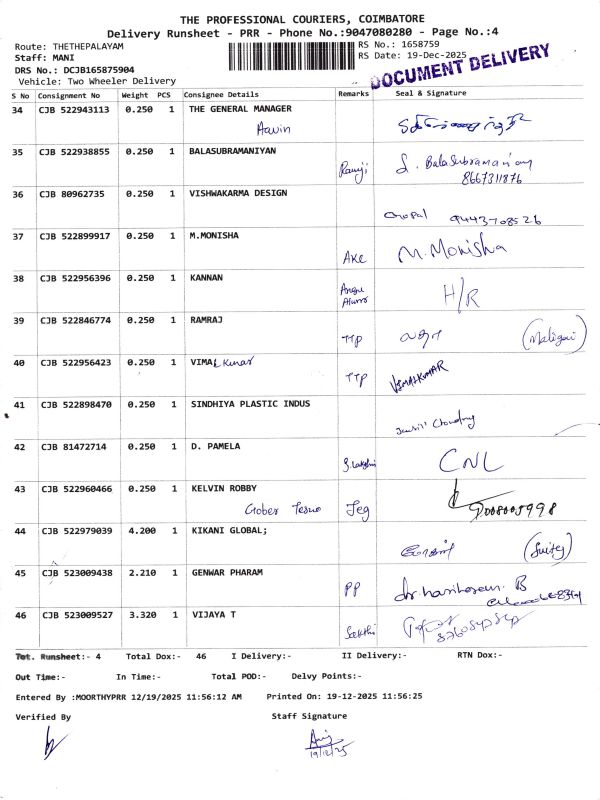 THE PROFESSIONAL COURIERS, COIMBATORE
Delivery Runsheet - PRR - Phone No.:9047080280 - Page No.:4
Route: THETHEPALAYAM RS No.: 1658759
Staff: MANI RS Date: 19-Dec-2025
DRS No.: DCJB165875904
DOCUMENT DELIVERY
Vehicle: Two Wheeler Delivery
S No Consignment No Weight PCS Consignee Details Remarks Seal & Signature
34 CJB 522943113 0.250 1 THE GENERAL MANAGER
Aavin
35 CJB 522938855 0.250 1 BALASUBRAMANIYAN
Ramji S. Balasubramaniyam
8667311876
36 CJB 80962735 0.250 1 VISHWAKARMA DESIGN
Gopal 9443708526
37 CJB 522899917 0.250 1 M.MONISHA
AKE M. Monisha
38 CJB 522956396 0.250 1 KANNAN
H/R
39 CJB 522846774 0.250 1 RAMRAJ
TTP
40 CJB 522956423 0.250 1 VIMAL Kumar
TTP VIMALKUMAR
41 CJB 522898470 0.250 1 SINDHIYA PLASTIC INDUS
Choudhry
42 CJB 81472714 0.250 1 D. PAMELA
CNL
43 CJB 522960466 0.250 1 KELVIN ROBBY
Jeg 9008005998
44 CJB 522979039 4.200 1 KIKANI GLOBAL;
45 CJB 523009438 2.210 1 GENWAR PHARAM
PP
46 CJB 523009527 3.320 1 VIJAYA T
Sakthi
Tot. Runsheet:- 4 Total Dox:- 46 I Delivery:- II Delivery:- RTN Dox:-
Out Time:- In Time:- Total POD:- Delvy Points:-
Entered By :MOORTHYPRR 12/19/2025 11:56:12 AM Printed On: 19-12-2025 11:56:25
Verified By Staff Signature
19/12/25